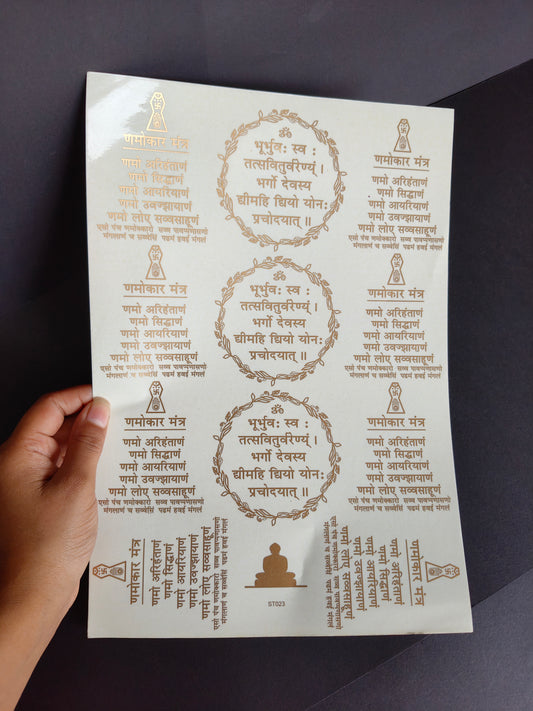 णमोकार मंत्र
णमो अरिहंताणं
णमो सिद्धाणं
णमो आयरियाणं
णमो उवज्झायाणं
णमो लोए सव्वसाहूणं
एसो पंच णमोक्कारो सव्व पावप्पणासणो
मंगलाणं च सव्वेसिं पढमं हवई मंगलं
ॐ
भूर्भुवः स्व :
तत्सवितुर्वरेण्यं ।
भर्गो देवस्य
धीमहि धियो योनः
प्रचोदयात् ॥
णमोकार मंत्र
णमो अरिहंताणं
णमो सिद्धाणं
णमो आयरियाणं
णमो उवज्झायाणं
णमो लोए सव्वसाहूणं
एसो पंच णमोक्कारो सव्व पावप्पणासणो
मंगलाणं च सव्वेसिं पढमं हवई मंगलं
णमोकार मंत्र
णमो अरिहंताणं
णमो सिद्धाणं
णमो आयरियाणं
णमो उवज्झायाणं
णमो लोए सव्वसाहूणं
एसो पंच णमोक्कारो सव्व पावप्पणासणो
मंगलाणं च सव्वेसिं पढमं हवई मंगलं
ॐ
भूर्भुवः स्व :
तत्सवितुर्वरेण्यं ।
भर्गो देवस्य
धीमहि धियो योनः
प्रचोदयात् ॥
णमोकार मंत्र
णमो अरिहंताणं
णमो सिद्धाणं
णमो आयरियाणं
णमो उवज्झायाणं
णमो लोए सव्वसाहूणं
एसो पंच णमोक्कारो सव्व पावप्पणासणो
मंगलाणं च सव्वेसिं पढमं हवई मंगलं
णमोकार मंत्र
णमो अरिहंताणं
णमो सिद्धाणं
णमो आयरियाणं
णमो उवज्झायाणं
णमो लोए सव्वसाहूणं
एसो पंच णमोक्कारो सव्व पावप्पणासणो
मंगलाणं च सव्वेसिं पढमं हवई मंगलं
ॐ
भूर्भुवः स्व :
तत्सवितुर्वरेण्यं ।
भर्गो देवस्य
धीमहि धियो योनः
प्रचोदयात् ॥
णमोकार मंत्र
णमो अरिहंताणं
णमो सिद्धाणं
णमो आयरियाणं
णमो उवज्झायाणं
णमो लोए सव्वसाहूणं
एसो पंच णमोक्कारो सव्व पावप्पणासणो
मंगलाणं च सव्वेसिं पढमं हवई मंगलं
णमोकार मंत्र
णमो अरिहंताणं
णमो सिद्धाणं
णमो आयरियाणं
णमो उवज्झायाणं
णमो लोए सव्वसाहूणं
एसो पंच णमोक्कारो सव्व पावप्पणासणो
मंगलाणं च सव्वेसिं पढमं हवई मंगलं
ST023
णमोकार मंत्र
णमो अरिहंताणं
णमो सिद्धाणं
णमो आयरियाणं
णमो उवज्झायाणं
णमो लोए सव्वसाहूणं
एसो पंच णमोक्कारो सव्व पावप्पणासणो
मंगलाणं च सव्वेसिं पढमं हवई मंगलं